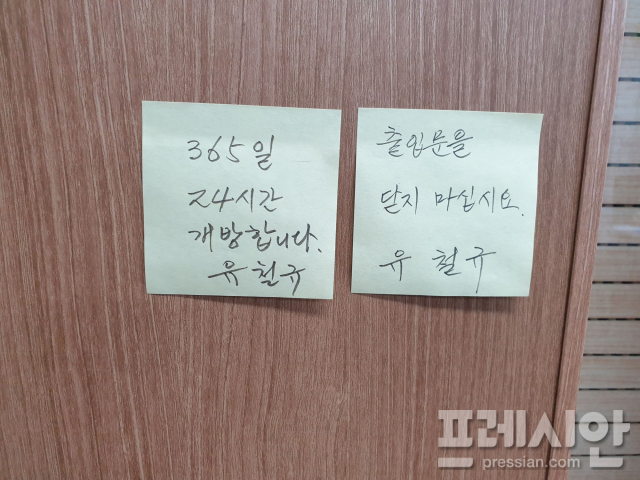 365일
24시간
개방합니다.
유철규
출입문을
닫지 마십시요.
유 철 규
프레시안
pressian.com